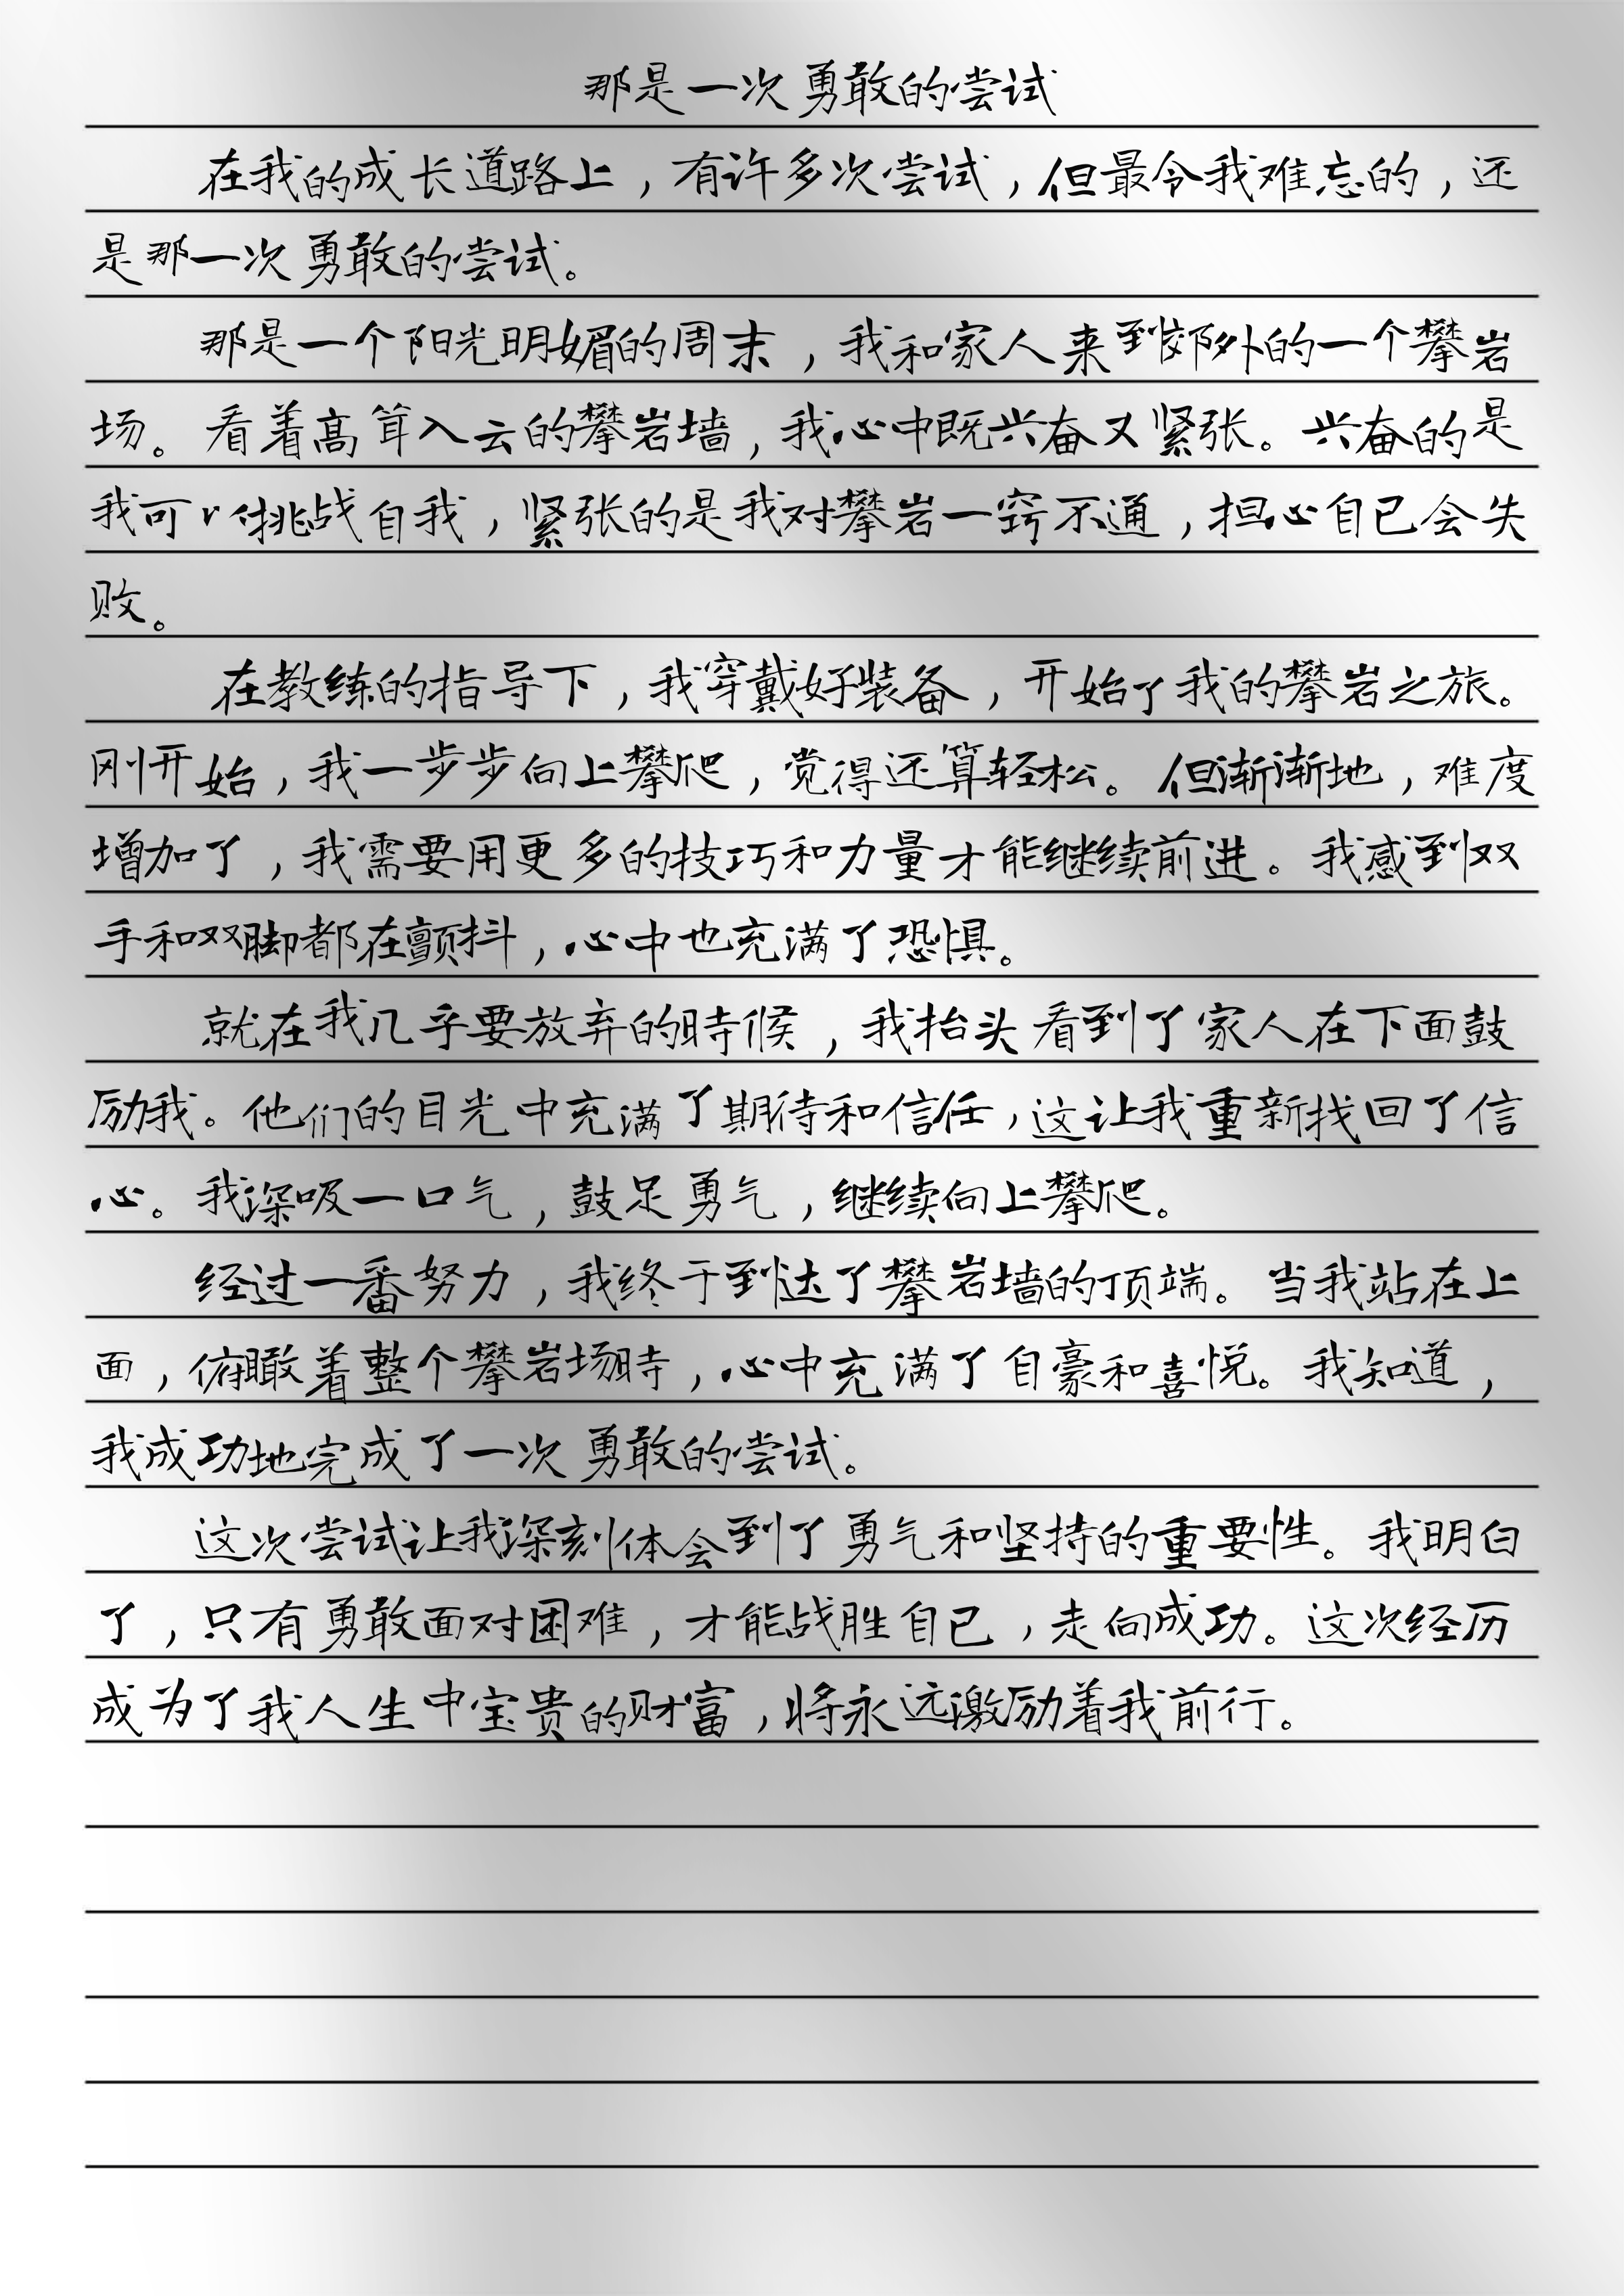 那是一次勇敢的尝试
在我的成长道路上，有许多次尝试，但最令我难忘的，还
是那一次勇敢的尝试。
那是一个阳光明媚的周末，我和家人来到郊外的一个攀岩
场。看着高耸入云的攀岩墙，我心中既兴奋又紧张。兴奋的是
我可以挑战自我，紧张的是我对攀岩一窍不通，担心自己会失
败。
在教练的指导下，我穿戴好装备，开始了我的攀岩之旅。
刚开始，我一步步向上攀爬，觉得还算轻松。但渐渐地，难度
增加了，我需要用更多的技巧和力量才能继续前进。我感到双
手和双脚都在颤抖，心中也充满了恐惧。
就在我几乎要放弃的时候，我抬头看到了家人在下面鼓
励我。他们的目光中充满了期待和信任，这让我重新找回了信
心。我深吸一口气，鼓足勇气，继续向上攀爬。
经过一番努力，我终于到达了攀岩墙的顶端。当我站在上
面，俯瞰着整个攀岩场时，心中充满了自豪和喜悦。我知道，
我成功地完成了一次勇敢的尝试。
这次尝试让我深刻体会到了勇气和坚持的重要性。我明白
了，只有勇敢面对困难，才能战胜自己，走向成功。这次经历
成为了我人生中宝贵的财富，将永远激励着我前行。